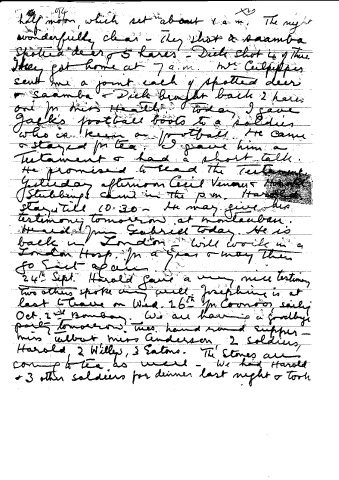 94 XV
half moon, which set about 2 a.m. The night
wonderfully clear. They shot 2 saamba
spotted deer & 5 hares - Dick shot of these
They got home at 7 a.m. Mrs Culpepper
sent me a joint each of spotted deer
& saamba & Dick brought back 2 hares
one for Miss Heath. Today I gave
Jack's football boots to a soldier
who is keen on football. He came
& stayed for tea. I gave him a
Testament & had a short talk.
He promised to read the Testament
Yesterday afternoon Cecil &
Stubbings came in the p.m. Harold
stay till 10.30 - He may give his
testimony tomorrow at
Heard from Gabriell today. He is
back in London - will work in a
London Hosp. for a year & may then
go East again!
24th Sept. Harold gave a very nice testimony
two others spoke well. Josephine is at
last to leave on Wed. 26th for Coonoor, sailing
Oct. 2nd Bombay. We are having a goodbye
party tomorrow, hand round supper -
Miss Talbut Miss Anderson, 2 soldiers,
Harold, 2 3 Eatons. The Stones are
coming to tea as well - We had Harold
& 3 other soldiers for dinner last night & took